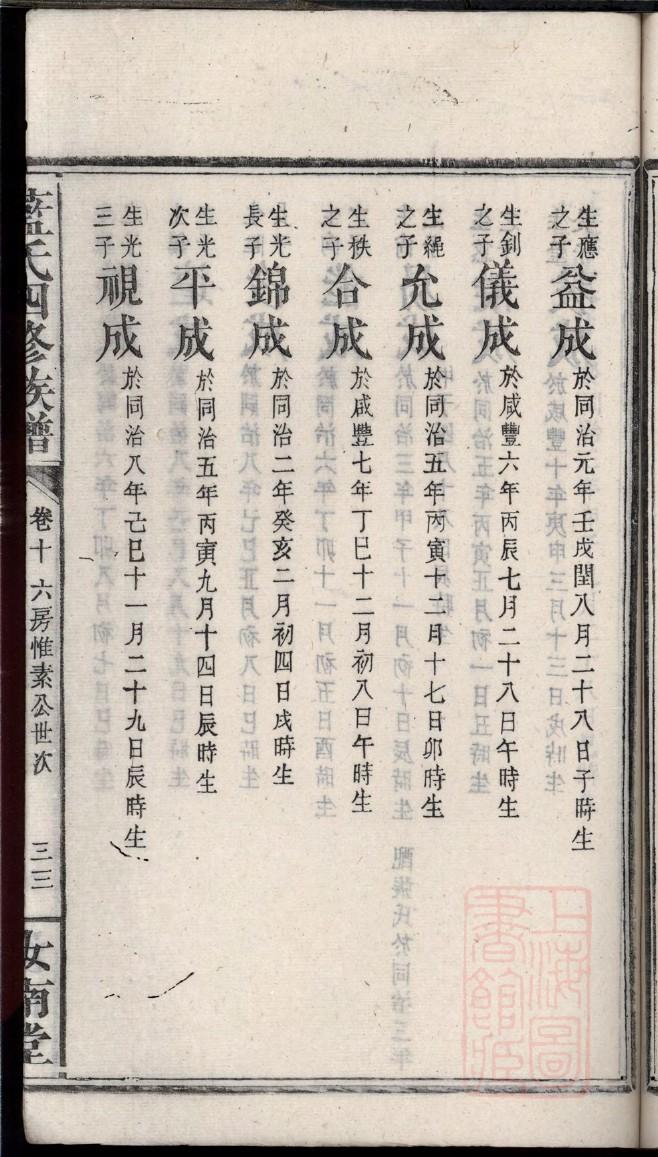 生應之子 益成 於同治元年壬戌閏八月二十八日子時生
生釗之子 儀成 於咸豐六年丙辰七月二十八日午時生
生繩之子 允成 於同治五年丙寅十二月十七日卯時生
生秩之子 合成 於咸豐七年丁巳十二月初八日午時生
生光長子 錦成 於同治二年癸亥二月初四日戌時生
生光次子 平成 於同治五年丙寅九月十四日辰時生
生光三子 視成 於同治八年己巳十一月二十九日辰時生
氏四修族譜 卷十 六房惟素公世次 三三 汝南堂
上海圖書館藏